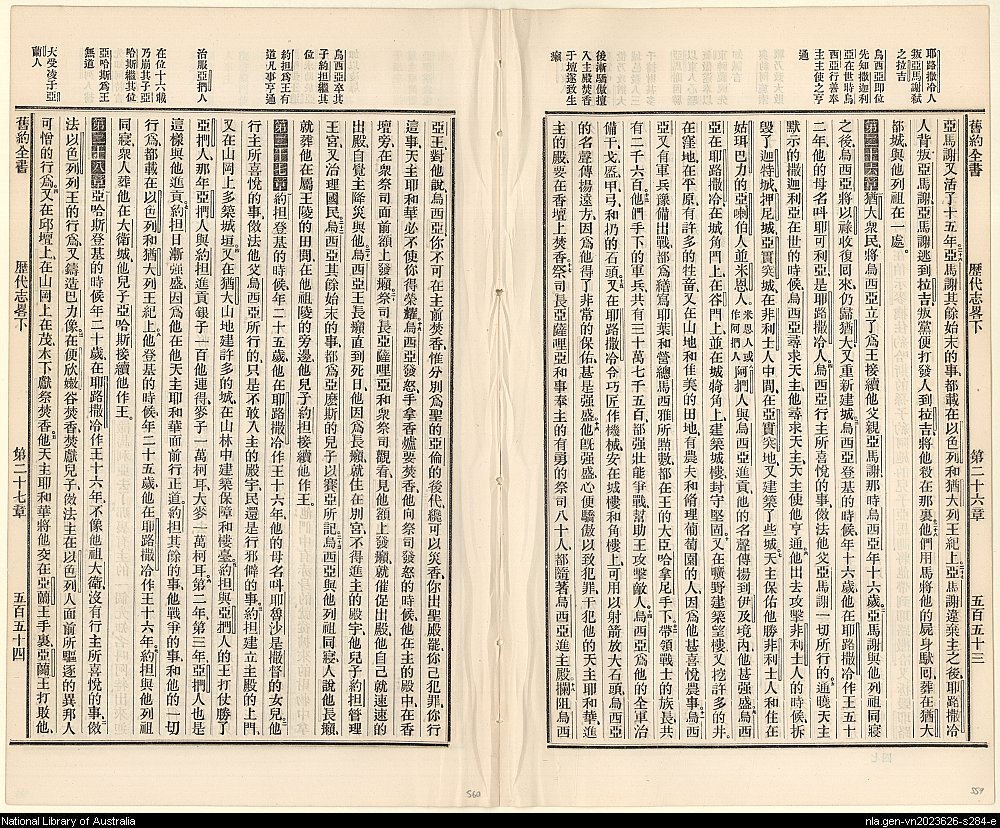 耶路撒冷人
叛亞馬謝弒
之拉吉
烏西亞即位
先知撒迦利
亞在世時烏
西亞行善奉
主主使之亨
通
後漸驕傲擅
入主殿焚香
于壇遂致生
癩
舊約全書 歷代志畧下 第二十六章 五百五十三
亞馬謝又活了十五年亞馬謝其餘始末的事都載在以色列和猶大列王紀上亞馬謝違棄主之後耶路撒冷
人背叛亞馬謝亞馬謝逃到拉吉叛黨便打發人到拉吉將他殺在那裏他們用馬將他的屍身馱回葬在猶大
都城與他列祖在一處
第二十六章猶大衆民將烏西亞立了爲王接續他父親亞馬謝那時烏西亞年十六歲亞馬謝與他列祖同寢
之後烏西亞將以祿收復回來仍歸猶大又重新建城烏西亞登基的時候年十六歲他在耶路撒冷作王五十
二年他的母名叫耶可利亞是耶路撒冷人烏西亞行主所喜悅的事倣法他父亞馬謝一切所行的通曉天主
默示的撒迦利亞在世的時候烏西亞尋求天主他尋求天主天主使他亨通他出去攻擊非利士人的時候拆
毀了迦特城押尼城亞實突城在非利士人中間在亞實突地又建築了些城天主保佑他勝非利士人和住在
姑珥巴力的亞喇伯人並米恩人米恩人或作阿捫人阿捫人與烏西亞進貢他的名聲傳揚到伊及境內他甚强盛烏西
亞在耶路撒冷在城角門上在谷門上並在城犄角上建築城樓封守堅固又在曠野建築望樓又挖許多的井
在窪地在平原有許多的牲畜又在山地和佳美的田地有農夫和脩理葡萄園的人因爲他甚喜悅農事烏西
亞又有軍兵豫備出戰都爲繕寫耶葉和營總馬西雅所點數都在王的大臣哈拿尼手下帶領戰士的族長共
有二千六百他們手下的軍兵共有三十萬七千五百都强壯能爭戰幫助王攻擊敵人烏西亞爲他的全軍冶
備干戈盔甲弓和扔的石頭又在耶路撒冷令巧匠作機械安在城樓和角樓上可用以射箭放大石頭烏西亞
的名聲傳揚遠方因爲他得了非常的保佑甚是强盛他旣强盛心便驕傲以致犯罪干犯他的天主耶和華進
主的殿要在香壇上焚香祭司長亞薩哩亞和事奉主的有勇的祭司八十人都隨著烏西亞進主殿攔阻烏西
烏西亞卒其
子約担繼其
位
約担爲王有
道凡事亨通
治服亞捫人
在位十六載
乃崩其子亞
哈斯繼其位
亞哈斯爲王
無道
大受淩于亞
蘭人
亞王對他說烏西亞你不可在主前焚香惟分別爲聖的亞倫的後代纔可以焚香你出聖殿罷你已犯罪你行
這事天主耶和華必不使你得榮耀烏西亞發怒手拿香爐要焚香他向祭司發怒的時候他在主的殿中在香
壇旁在衆祭司面前額上發癩祭司長亞薩哩亞和衆祭司觀看見他額上發癩就催促出殿他自己就速速的
出殿自覺主降災與他烏西亞王長癩直到死日他因爲長癩就住在別宮不得進主的殿宇他兒子約担管理
王宮又治理國民烏西亞其餘始末的事都爲亞麼斯的兒子以賽亞所記烏西亞與他列祖同寢人說他長癩
就葬他在屬王陵的田間在他祖陵的旁邊他兒子約担接續他作王
第二十七章約担登基的時候年二十五歲他在耶路撒冷作王十六年他的母名叫耶魯沙是撒督的女兒他
行主所喜悅的事倣法他父烏西亞所行的只是不敢入主的殿宇民還是行邪僻的事約担建立主殿的上門
又在山岡上多築城垣又在猶大山地建許多的城在山林中建築保障和樓臺約担與亞捫人的王打仗勝了
亞捫人那年亞捫人與約担進貢銀子一百他連得麥子一萬柯耳大麥一萬柯耳第二年第三年亞捫人也是
這樣與他進貢約担日漸强盛因爲他在他天主耶和華面前行正道約担其餘的事他戰爭的事和他的一切
行爲都載在以色列和猶大列王紀上他登基的時候年二十五歲他在耶路撒冷作王十六年約担與他列祖
同寢衆人葬他在大衛城他兒子亞哈斯接續他作王
第二十八章亞哈斯登基的時候年二十歲在耶路撒冷作王十六年不像他祖大衛沒有行主所喜悅的事倣
法以色列列王的行爲又鑄造巴力像在便欣嫩谷焚香焚獻兒子倣法主在以色列人面前所驅逐的異邦人
可憎的行爲又在邱壇上在山岡上在茂木下獻祭焚香他天主耶和華將他交在亞蘭王手裏亞蘭王打敗他
舊約全書 歷代志畧下 第二十七章 五百五十四
560
559
National Library of Australia
nla.gen-vn2023626-s284-e